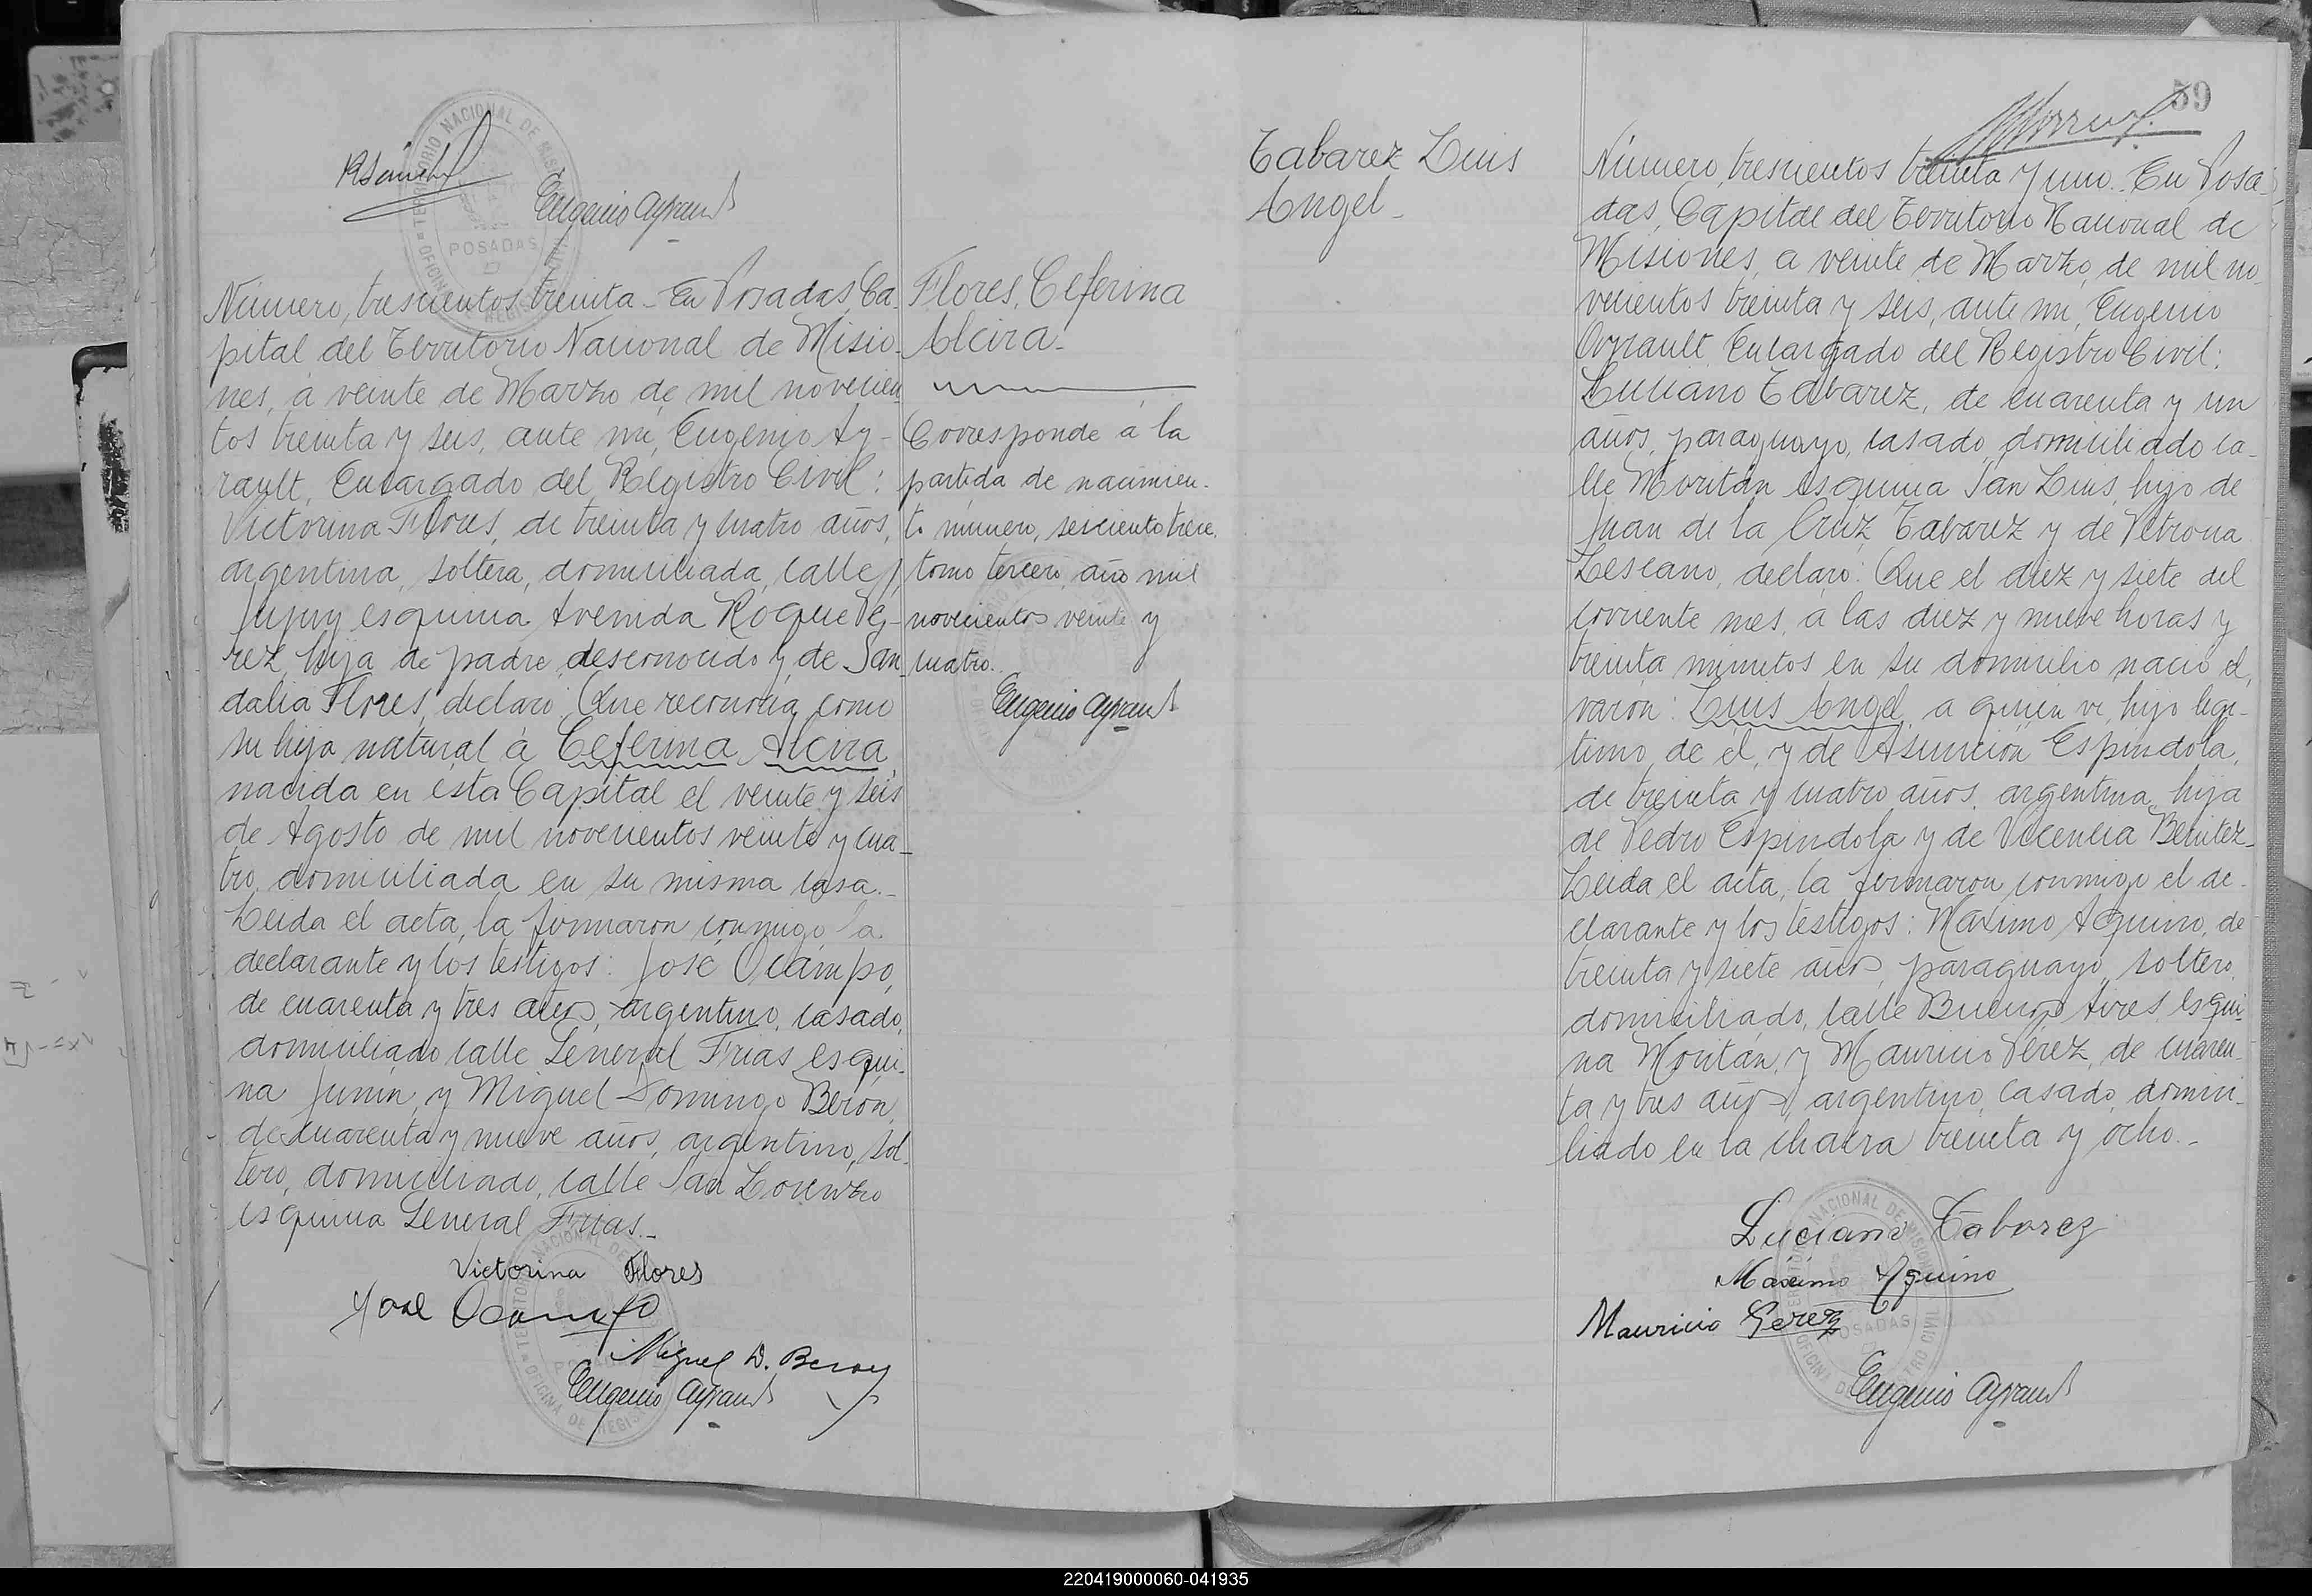 Eugenio Ayrault
TERRITORIO NACIONAL DE MISIONES
POSADAS
OFICINA DE REGISTRO CIVIL
Número, trescientos treinta. En Posadas, Ca-
pital del Territorio Nacional de Misio-
nes, a veinte de Marzo de mil novecien-
tos treinta y seis, ante mi, Eugenio Ay-
rault, Encargado del Registro Civil:
Victorina Flores, de treinta y cuatro años,
argentina, soltera, domiciliada, calle
Jujuy esquina Avenida Roque Pé-
rez, hija de padre desconocido y de San-
dalia Flores, declaró: Que reconocía como
su hija natural á Ceferina Alcira,
nacida en esta Capital el veinte y seis
de Agosto de mil novecientos veinte y cua-
tro, domiciliada en su misma casa.-
Leida el acta, la firmaron conmigo la
declarante y los testigos: José Ocampo,
de cuarenta y tres años, argentino, casado,
domiciliado calle General Frias esqui-
na Junin, y Miguel Domingo Berón,
de cuarenta y nueve años, argentino, sol-
tero, domiciliado, calle San Lorenzo
esquina General Frias.-
Victorina Flores
José Ocampo
Miguel D. Beron
Eugenio Ayrault
Flores, Ceferina
Alcira-
Corresponde á la
partida de nacimien-
to número, seiscientos trece,
tomo tercero, año mil
novecientos veinte y
cuatro.
Eugenio Ayrault
Tabarez Luis
Angel-
59
Número, trescientos treinta y uno. En Posa-
das, Capital del Territorio Nacional de
Misiones, a veinte de Marzo, de mil no-
vecientos treinta y seis, ante mi, Eugenio
Ayrault, Encargado del Registro Civil:
Luciano Tabarez, de cuarenta y un
años, paraguayo, casado, domiciliado ca-
lle Moritán esquina San Luis, hijo de
Juan de la Cruz Tabarez y de Petrona
Lescano, declaró: Que el diez y siete del
corriente mes, a las diez y nueve horas y
treinta minutos en su domicilio nació el
varón: Luis Angel, a quién vi, hijo legi-
timo de él, y de Asunción Espindola,
de treinta y cuatro años, argentina, hija
de Pedro Espindola y de Vicencia Benitez-
Leida el acta, la firmaron conmigo el de-
clarante y los testigos: Máximo Aquino, de
treinta y siete años, paraguayo, soltero,
domiciliado, calle Buenos Aires, esqui-
na Moritán, y Mauricio Pérez, de cuaren-
ta y tres años, argentino, casado, domici-
liado en la chacra treinta y ocho.-
Luciano Tabarez
Máximo Aquino
Mauricio Perez
Eugenio Ayrault
220419000060-041935